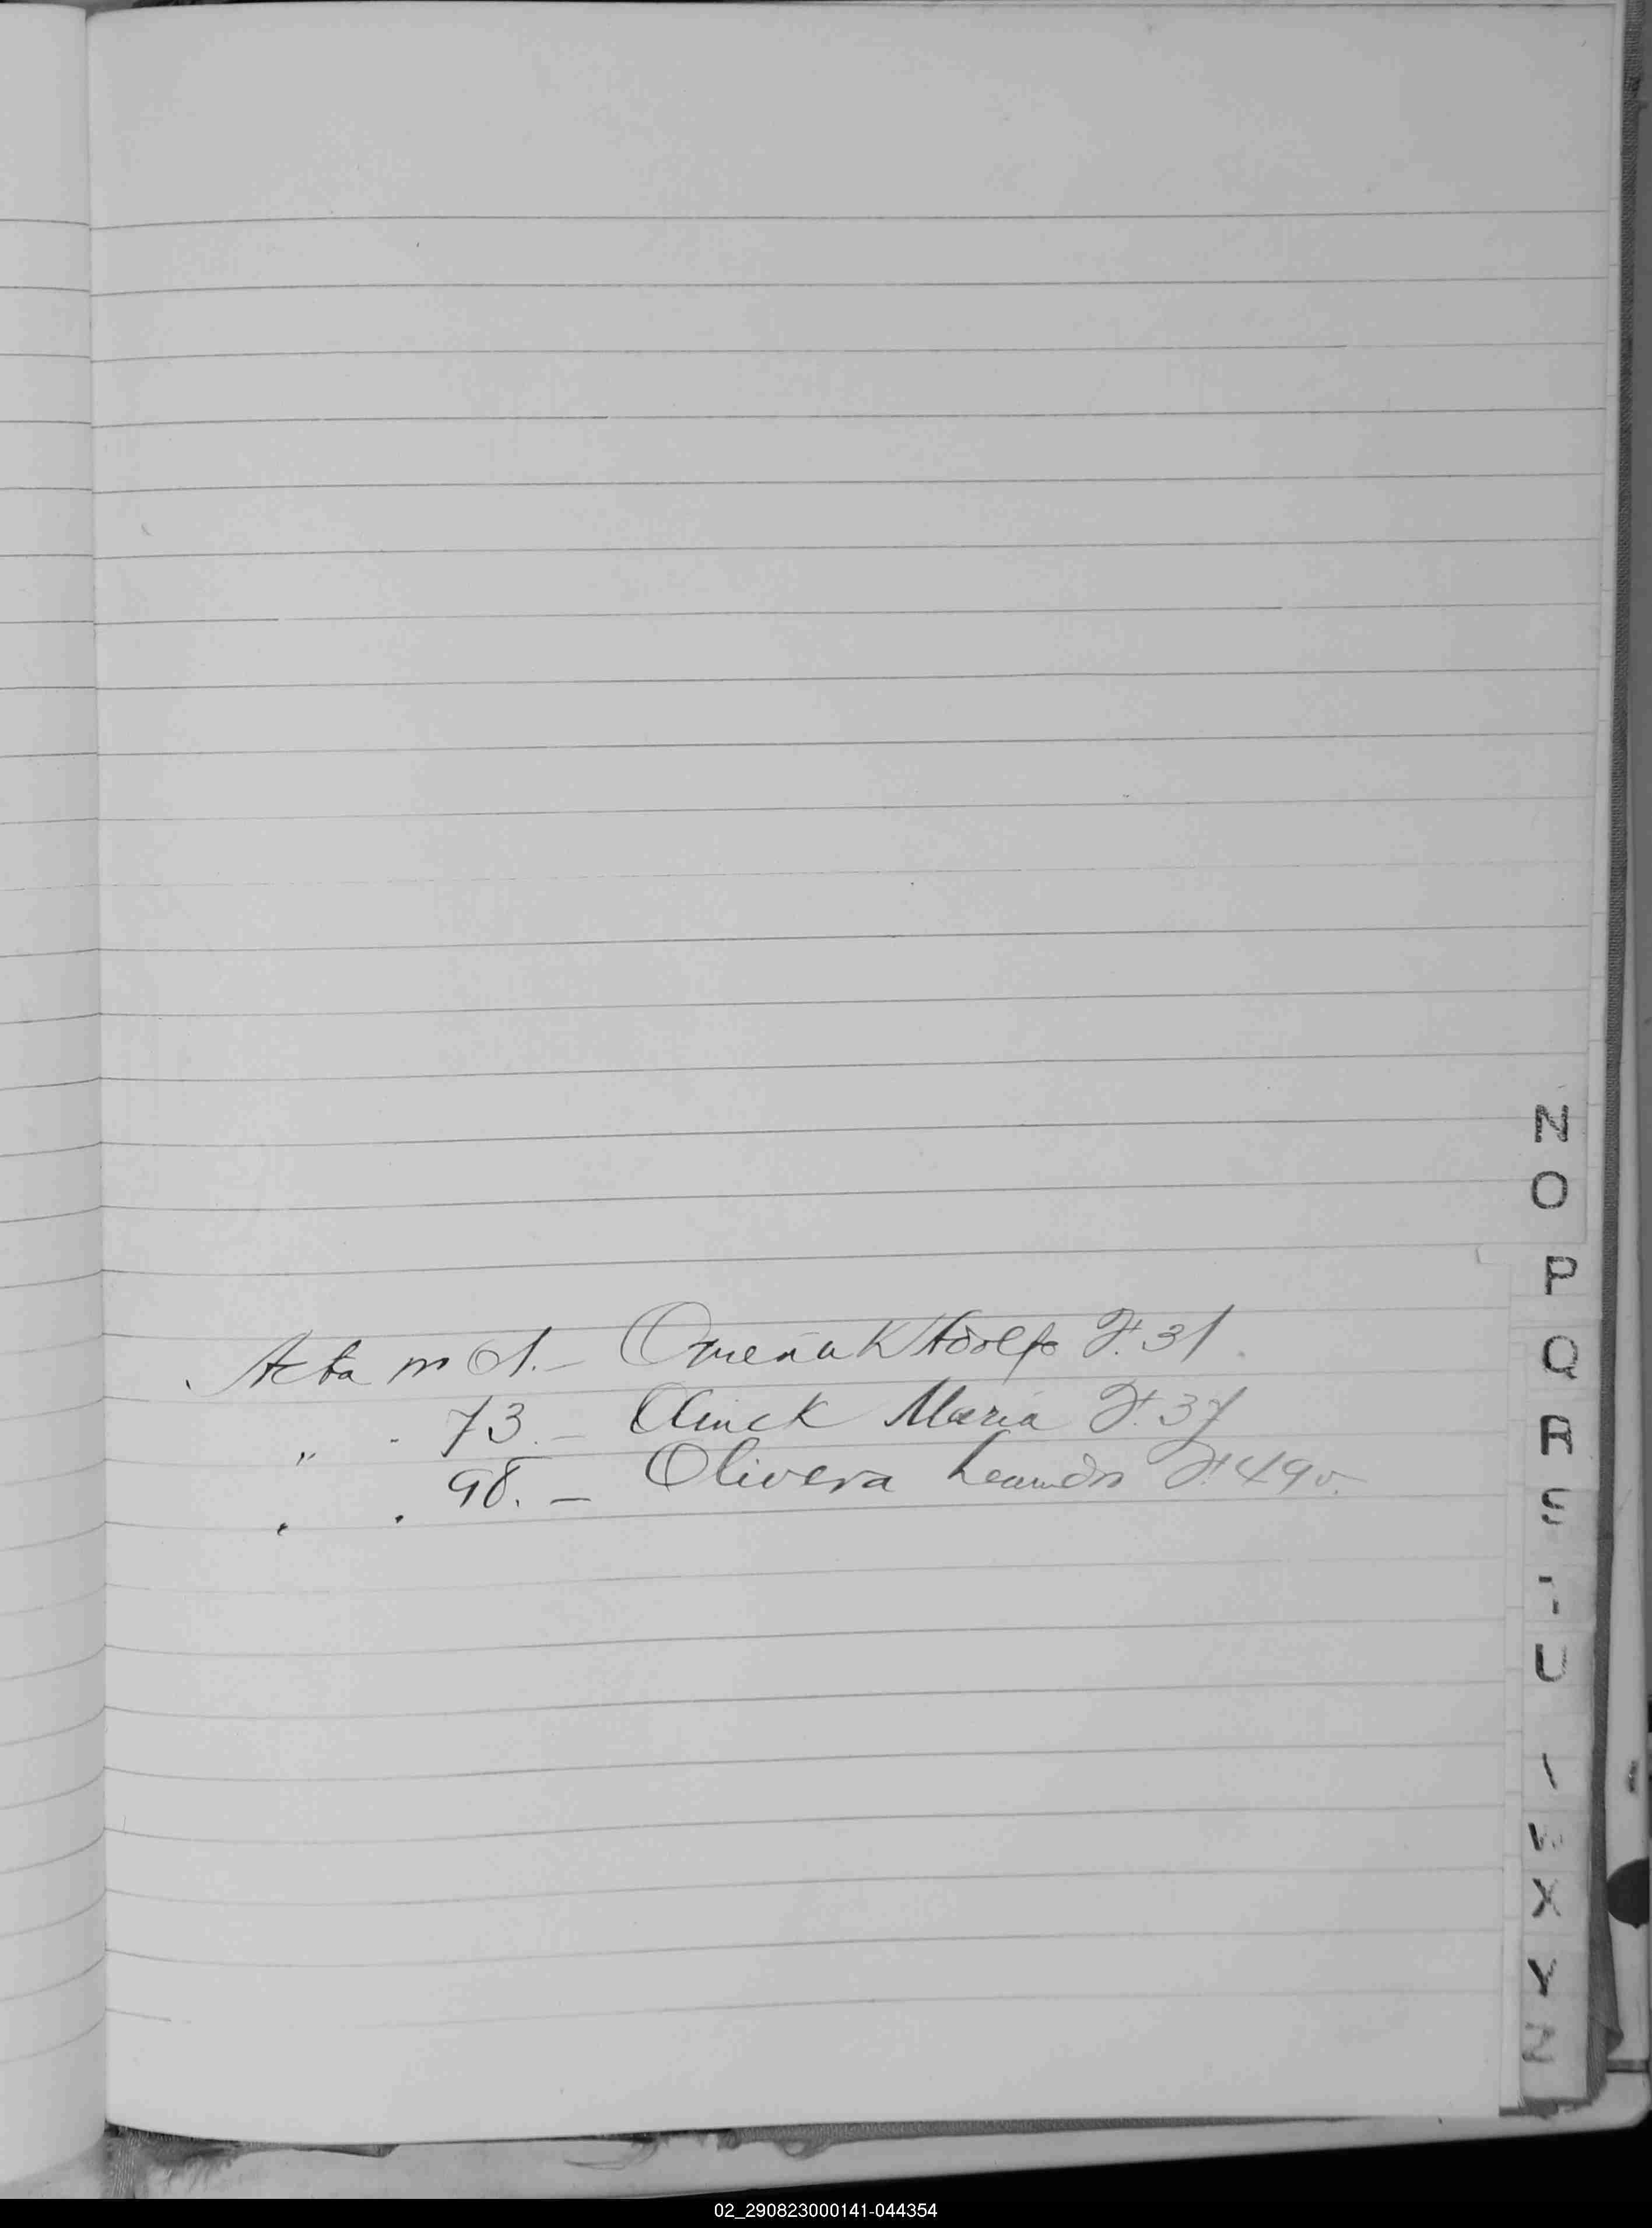 Acta nº 61.- Omeñak Adolfo Fº. 31
" . 73.- Olinek Maria Fº. 37
. . 98.- Olivera Leandro Fº 49v.
N
O
P
Q
R
S
U
W
X
Y
Z
02_290823000141-044354